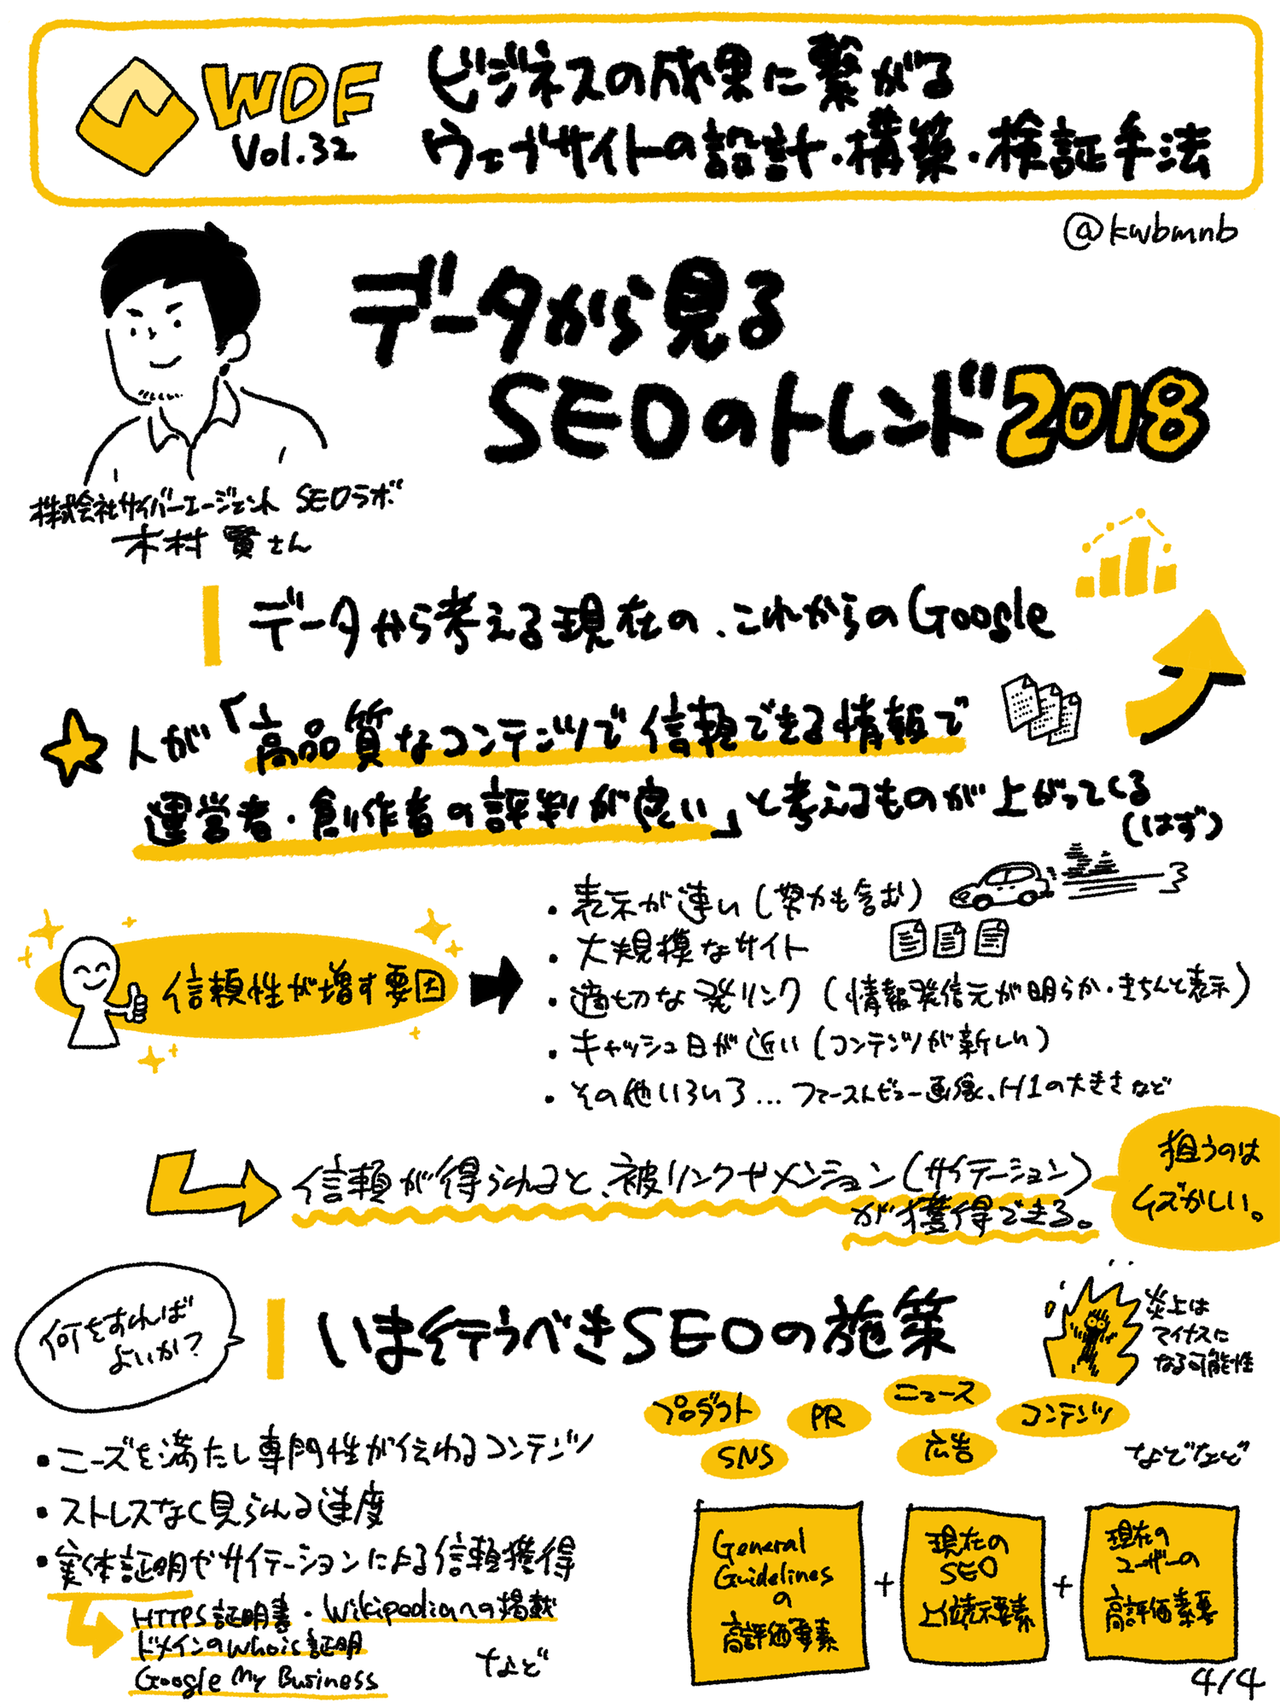 WDF
Vol.32
ビジネスの成果に繋がる
ウェブサイトの設計・構築・検証手法
@kwbmnb
データから見る
SEOのトレンド2018
株式会社サイバーエージェント SEOラボ
木村 賢さん
データから考える現在の、これからのGoogle
人が「高品質なコンテンツで信頼できる情報で
運営者・創作者の評判が良い」と考えるものが上がってくる
(はず)
信頼性が増す要因
・表示が速い(努力も含む)
・大規模なサイト
・適切な発リンク(情報発信元が明らか・きちんと表示)
・キャッシュ日が近い(コンテンツが新しい)
・その他いろいろ...ファーストビュー画像、H1の大きさなど
信頼が得られると、被リンクやメンション(サイテーション)
が獲得できる。
狙うのは
ムズかしい。
何をすれば
よいか?
いま行うべきSEOの施策
炎上は
マイナスに
なる可能性
プロダクト
PR
ニュース
コンテンツ
SNS
広告
などなど
・ニーズを満たし専門性が伝わるコンテンツ
・ストレスなく見られる速度
・実体証明やサイテーションによる信頼獲得
HTTPS証明書・Wikipediaへの掲載
ドメインのwhois証明
Google My Business
など
General
Guidelines
の
高評価要素
+
現在の
SEO
上位表示要素
+
現在の
ユーザーの
高評価要素
4/4